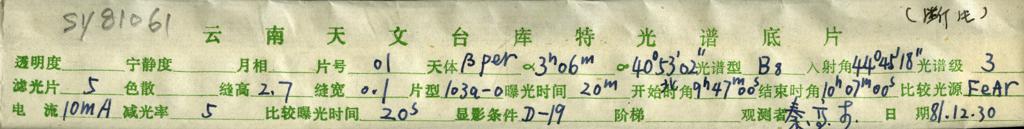 SY81061 (断片)
云南天文台库特光谱底片
透明度 宁静度 月相 片号 01 天体 β per α 3h06m δ 40°53′02″ 光谱型 B8 入射角 44°45′18″ 光谱级 3
滤光片 5 色散 缝高 2.7 缝宽 0.1 片型 103a-0 曝光时间 20m 开始时角 9h47m00s 结束时角 10h07m00s 比较光源 FeAr
电流 10mA 减光率 5 比较曝光时间 20s 显影条件 D-19 阶梯 观测者 日期 81.12.30